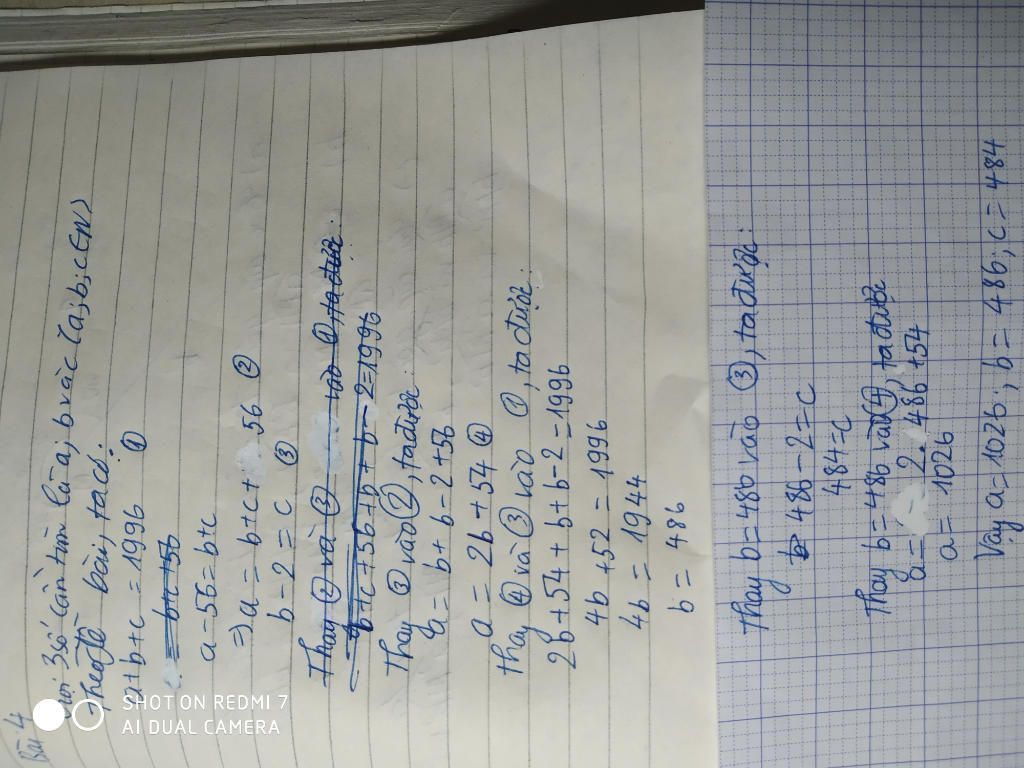 Bài 4
Gọi 3 số cần tìm là a; b và c (a; b; c ∈ N)
Theo đề bài, ta có:
a + b + c = 1996 ①
= b+c+56
a - 56 = b + c
⇒ a = b + c + 56 ②
b - 2 = c ③
Thay ② và ③ vào ①, ta được:
b + c + 56 + b + b - 2 = 1996
Thay ③ vào ②, ta được:
a = b + b - 2 + 56
a = 2b + 54 ④
Thay ④ và ③ vào ①, ta được:
2b + 54 + b + b - 2 = 1996
4b + 52 = 1996
4b = 1944
b = 486
Thay b = 486 vào ③, ta được:
486 - 2 = c
484 = c
Thay b = 486 vào ④, ta được
a = 2 . 486 + 54
a = 1026
Vậy a = 1026; b = 486; c = 484
SHOT ON REDMI 7
AI DUAL CAMERA